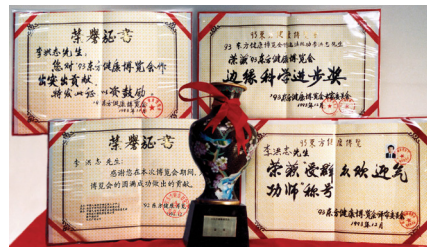 荣誉证书
李洪志先生:
您对'93东方健康博览会作
出突出贡献,
特发此证以资鼓励。
'93东方健康博览会
1993年12月
'93东方健康博览会
李洪志先生
荣获'93东方健康博览会
边缘科学进步奖
'93东方健康博览会评审委员会
1993年12月
荣誉证书
李洪志先生:
感谢您在本次博览会期间,
博览会的圆满成功做出的贡献。
'93东方健康博览会
'93东方健康博览
李洪志先生
荣获受群众欢迎气
功师称号
'93东方健康博览会评审委员会
1993年12月